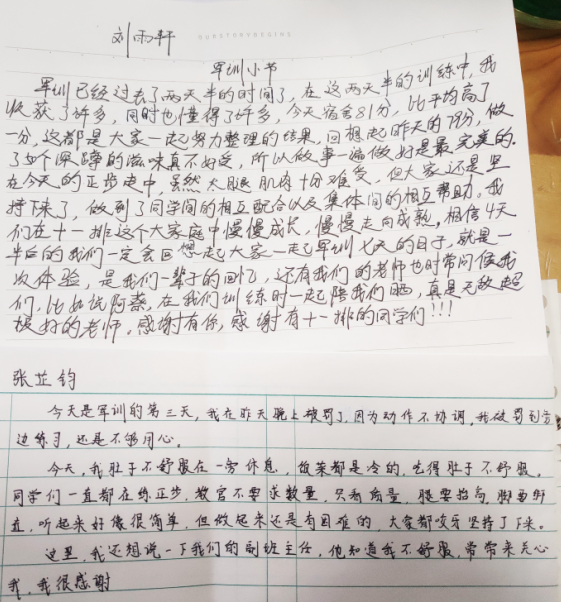 刘雨轩
OURSTORYBEGINS
军训小节
军训已经过去了两天半的时间了，在这两天半的训练中，我
收获了许多，同时也懂得了许多，今天宿舍81分，比平均高了
一分，这都是大家一起努力整理的结果，回想起昨天的79分，做
了30个深蹲的滋味真不好受，所以做事一遍做好是最完美的。
在今天的正步走中，虽然大腿肌肉十分难受，但大家还是坚
持下来了，做到了同学间的相互配合以及集体间的相互帮助。我
们在十一排这个大家庭中慢慢成长，慢慢走向成熟，相信4天
半后的我们一定会回想起大家一起军训七天的日子，就是一
次体验，是我们一辈子的回忆，还有我们的老师也时常问候我
们，比如说阿蔡，在我们训练时一起陪我们晒，真是无敌超
级好的老师。感谢有你，感谢有十一排的同学们!!!
张芷钧
今天是军训的第三天，我在昨天晚上被罚了，因为动作不协调，我被罚到旁
边练习，还是不够用心。
今天，我肚子不舒服在一旁休息，饭菜都是冷的，吃得肚子不舒服。
同学们一直都在练正步，教官不要求数量，只看质量，腿要抬高，脚要绷
直，听起来好像很简单，但做起来还是有困难的，大家都咬牙坚持了下来。
这里，我还想说一下我们的副班主任，他知道我不舒服，常常来关心
我，我很感谢